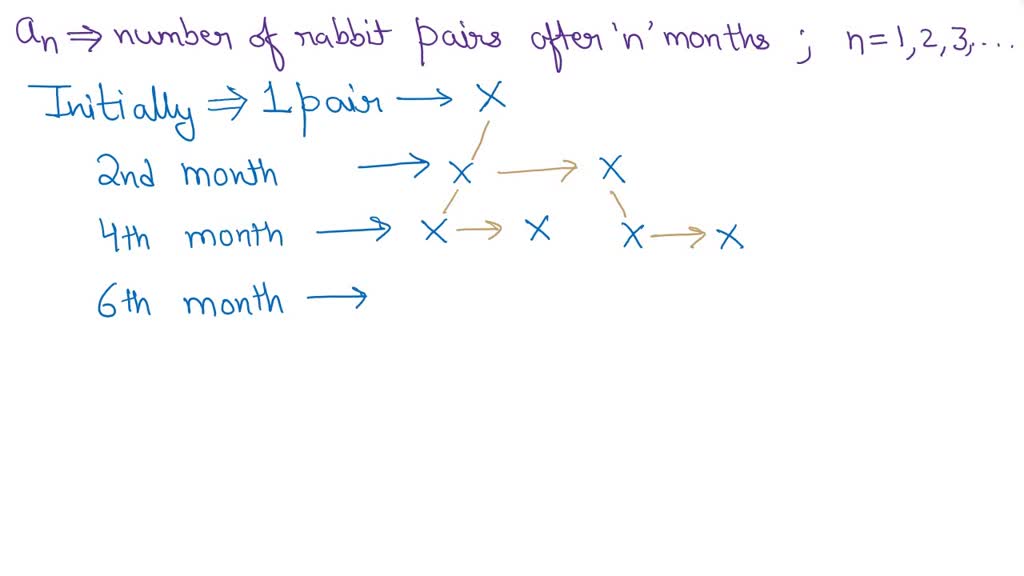 aₙ ⇒ number of rabbit pairs after 'n' months ; n=1,2,3,....
Initially ⇒ 1 pair → X
2nd month → X → X
4th month → X → X X → X
6th month →